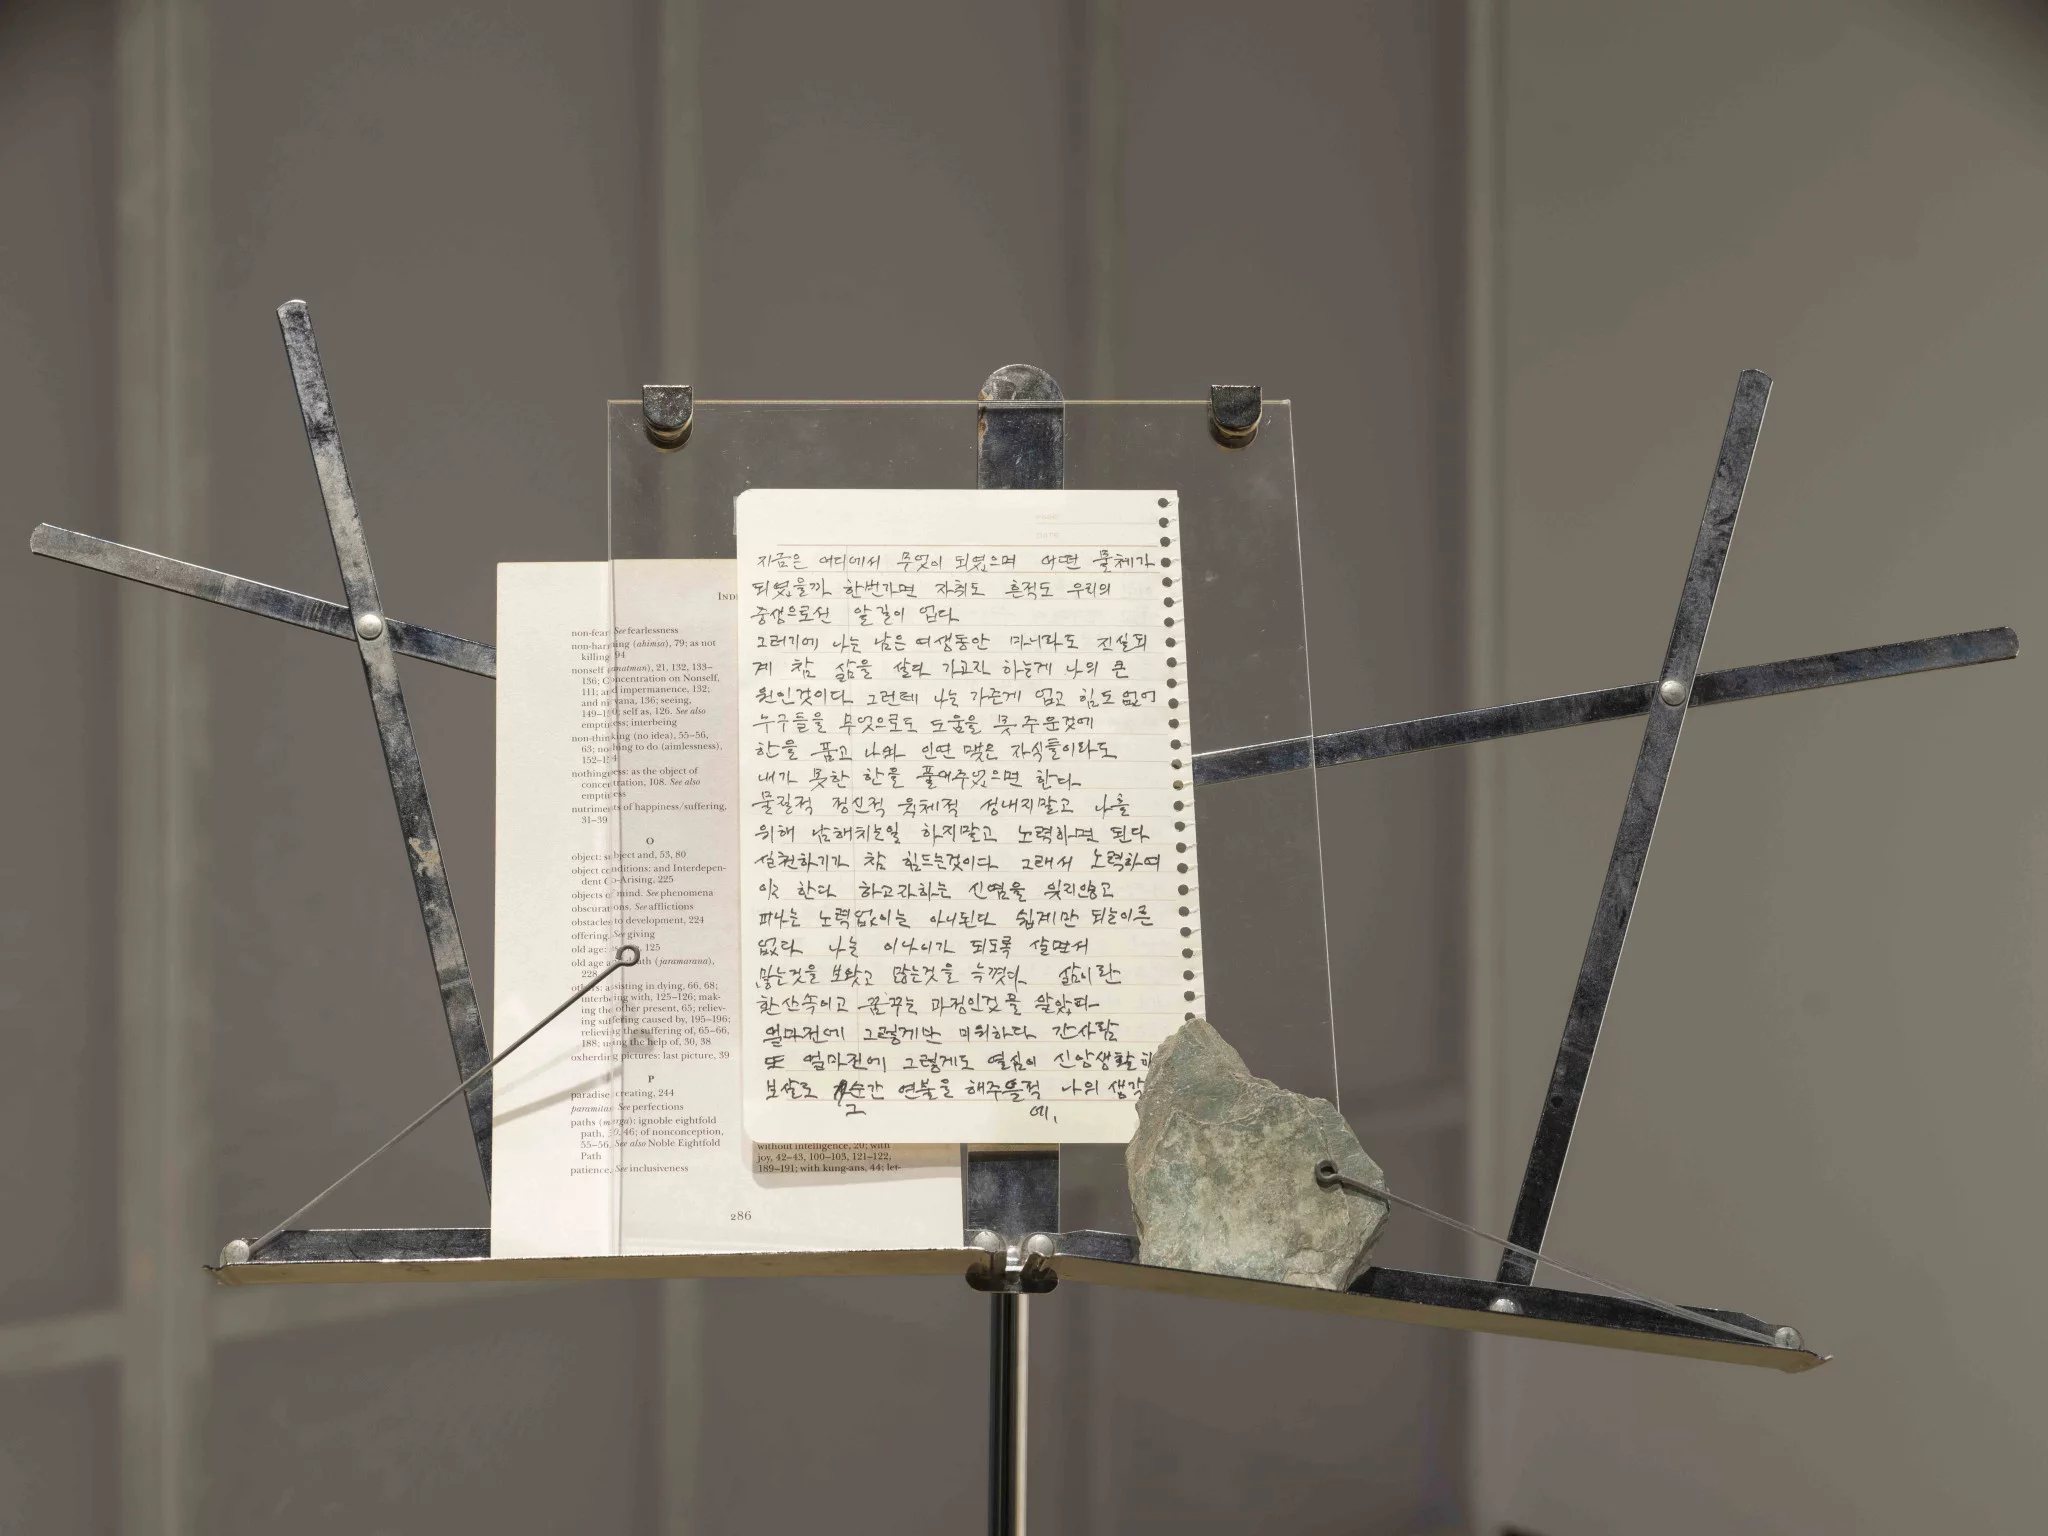 INDE
non-fear. See fearlessness
non-harming (ahimsa), 79; as not
killing, 94
nonself (anatman), 21, 132, 133–
136; Concentration on Nonself,
111; and impermanence, 132;
and nirvana, 136; seeing,
149–150; self as, 126. See also
emptiness; interbeing
non-thinking (no idea), 55–56,
63; nothing to do (aimlessness),
152–154
nothingness: as the object of
concentration, 108. See also
emptiness
nutriments of happiness/suffering,
31–39
O
object: subject and, 53, 80
object conditions: and Interdepen-
dent Co-Arising, 225
objects of mind. See phenomena
obscurations. See afflictions
obstacles to development, 224
offering. See giving
old age: 125
old age and death (jaramarana),
228
others: assisting in dying, 66, 68;
interbeing with, 125–126; mak-
ing the other present, 65; reliev-
ing suffering caused by, 195–196;
relieving the suffering of, 65–66,
188; using the help of, 30, 38
oxherding pictures: last picture, 39
P
paradise, creating, 244
paramitas. See perfections
paths (marga): ignoble eightfold
path, 46; of nonconception,
55–56. See also Noble Eightfold
Path
patience. See inclusiveness
without intelligence, 20; with
joy, 42–43, 100–103, 121–122,
189–191; with kung-ans, 44; let-
286
지금은 어디에서 무엇이 되였으며 어떤 물체가
되였을까 한번가면 자취도 흔적도 우리의
중생으로선 알길이 없다
그러기에 나는 남은 여생동안 마니라도 진실되
게 참 삶을 살다 가고자 하는게 나의 큰
원인것이다 그런데 나는 가준게 없고 힘도 없어
누구들을 무엇으로도 도움을 못 주운것에
한을 품고 나와 인연 맺은 자식들이라도
내가 못한 한를 풀어주었으면 한다.
물질적 정신적 육체적 성내지말고 나를
위해 남해치는일 하지말고 노력하면 된다
실천하기가 참 힘드는것이다 그래서 노력하여
한다 하고라하는 신념을 잊지않고
피나는 노력없이는 아니된다 쉽게만 되는이른
없다 나는 이나이가 되도록 살면서
많는것을 보왔고 많는것을 늑꼈다 삶이란
환산속이고 꿈꾸는 과정인것을 알았다
얼마전에 그렇게만 미워하다 간사람
또 얼마전에 그렇게도 열심이 신앙생활하
보살로 그순간 연불을 해주을적 나의 생각
에,